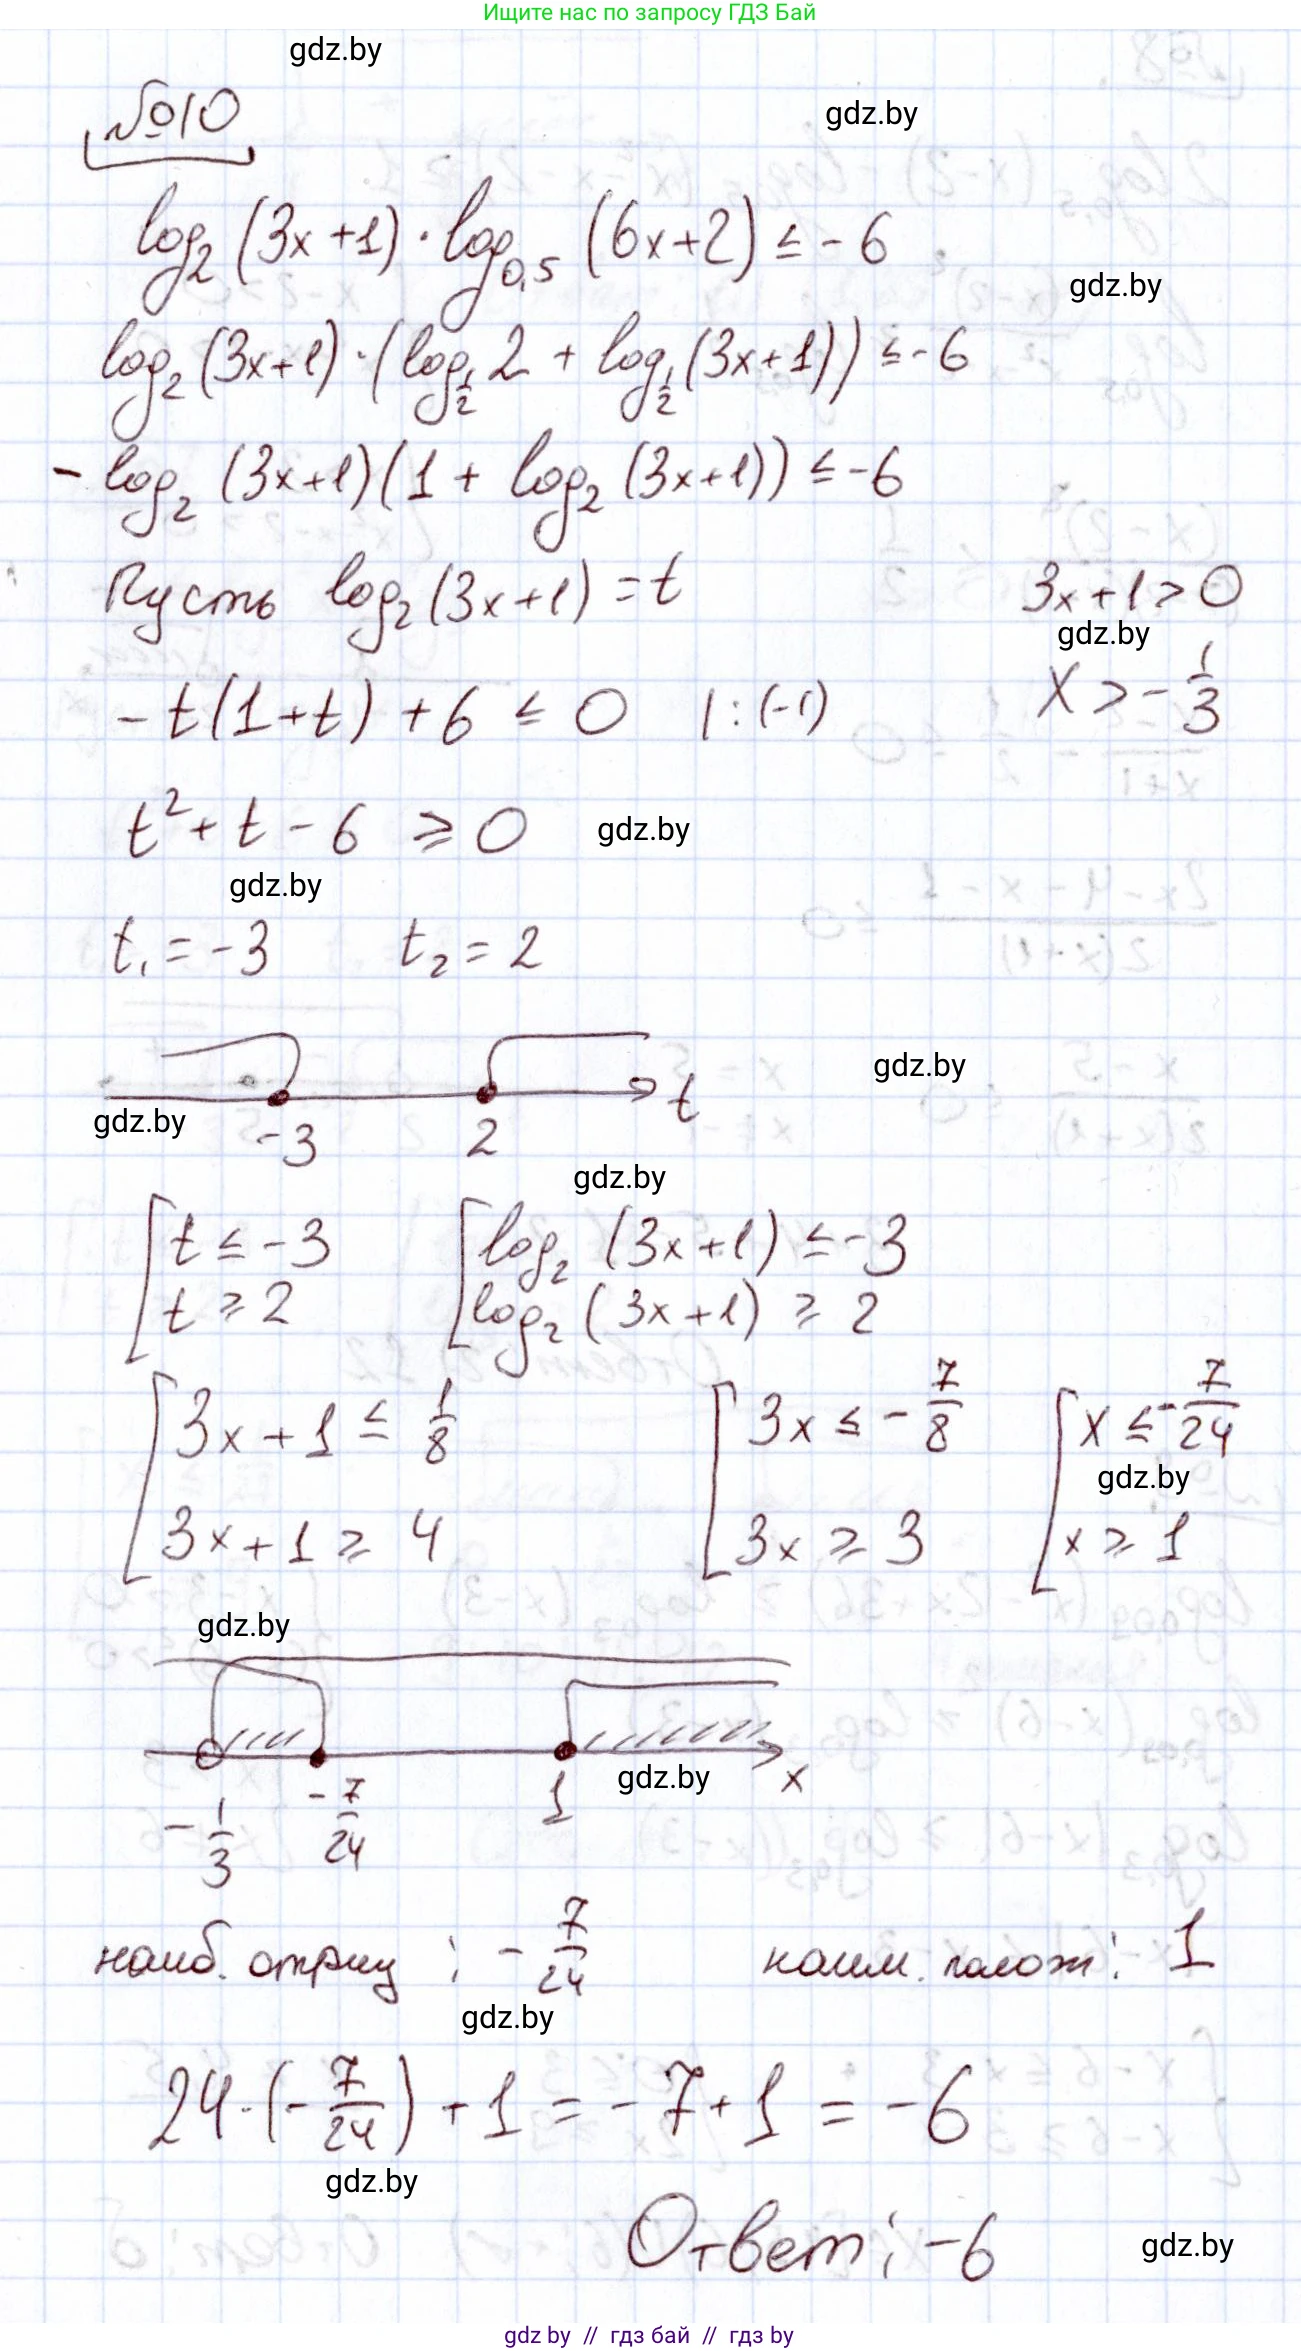 Ищите нас по запросу ГДЗ Бай
gdz.by
№10
gdz.by
log₂ (3x+1) · log₀,₅ (6x+2) ≤ -6
gdz.by
log₂ (3x+1) · (log_{1/2} 2 + log_{1/2} (3x+1)) ≤ -6
- log₂ (3x+1)(1 + log₂ (3x+1)) ≤ -6
Пусть log₂ (3x+1) = t 3x+1 > 0
gdz.by
- t(1+t) + 6 ≤ 0 | : (-1) x > - 1/3
t² + t - 6 ≥ 0 gdz.by
gdz.by
t₁ = -3 t₂ = 2
gdz.by
t
gdz.by
-3 2
gdz.by
[ t ≤ -3 [ log₂ (3x+1) ≤ -3
t ≥ 2 log₂ (3x+1) ≥ 2
[ 3x+1 ≤ 1/8 [ 3x ≤ - 7/8 [ x ≤ - 7/24
gdz.by
3x+1 ≥ 4 3x ≥ 3 x ≥ 1
gdz.by
gdz.by x
- 1/3 - 7/24 1
наиб. отриц : - 7/24 наим. полож : 1
gdz.by
24 · (- 7/24) + 1 = - 7 + 1 = -6
gdz.by
Ответ: -6 gdz.by
gdz by // гдз бай // гдз by